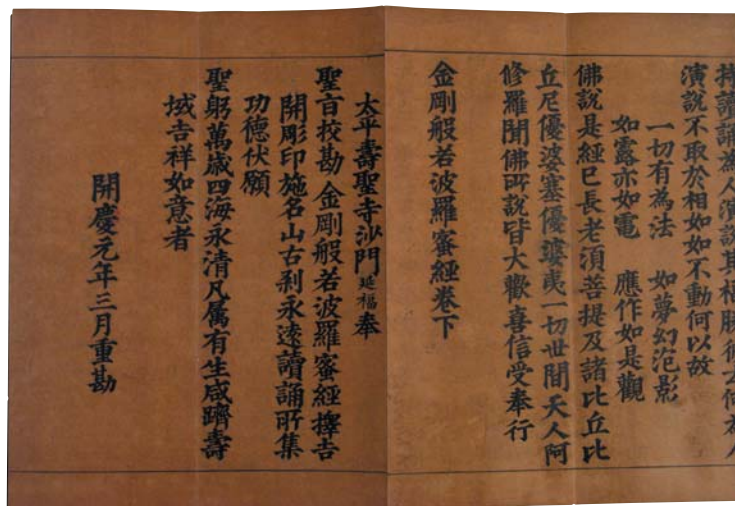 持讀誦為人演說其福勝彼云何為人
演說不取於相如如不動何以故
一切有為法　如夢幻泡影
如露亦如電　應作如是觀
佛說是經已長老須菩提及諸比丘比
丘尼優婆塞優婆夷一切世間天人阿
修羅聞佛所說皆大歡喜信受奉行
金剛般若波羅蜜經卷下
太平壽聖寺沙門延福奉
聖旨挍勘 金剛般若波羅蜜經擇吉
開彫印施名山古剎永遠讀誦所集
功德伏願
聖躬萬歲四海永清凡属有生咸躋壽
域吉祥如意者
開慶元年三月重勘